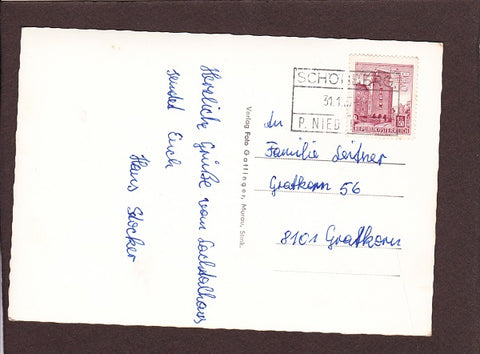 Herzliche Grüße vom Lachtalhaus
sendet Euch
Hans Stocker
Verlag Foto Gattinger, Murau, Stmk.
SCHÖNBERG
31.1.
P. NIED
REPUBLIK ÖSTERREICH
An
Familie Leitner
Gratkorn 56
8101 Gratkorn